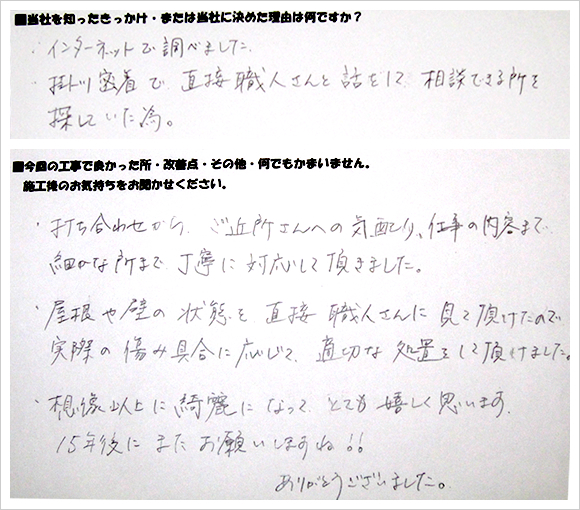 ■当社を知ったきっかけ・または当社に決めた理由は何ですか？
・インターネットで調べました。
・掛川密着で、直接職人さんと話をして、相談できる所を
探していた為。
■今回の工事で良かった所・改善点・その他・何でもかまいません。
施工後のお気持ちをお聞かせください。
・打ち合わせから、ご近所さんへの気配り、仕事の内容まで
細かな所まで丁寧に対応して頂きました。
・屋根や壁の状態を直接職人さんに見て頂けたので、
実際の傷み具合に応じて、適切な処置をして頂けました。
・想像以上に綺麗になって、とても嬉しく思います。
15年後にまたお願いしますね!!
ありがとうございました。